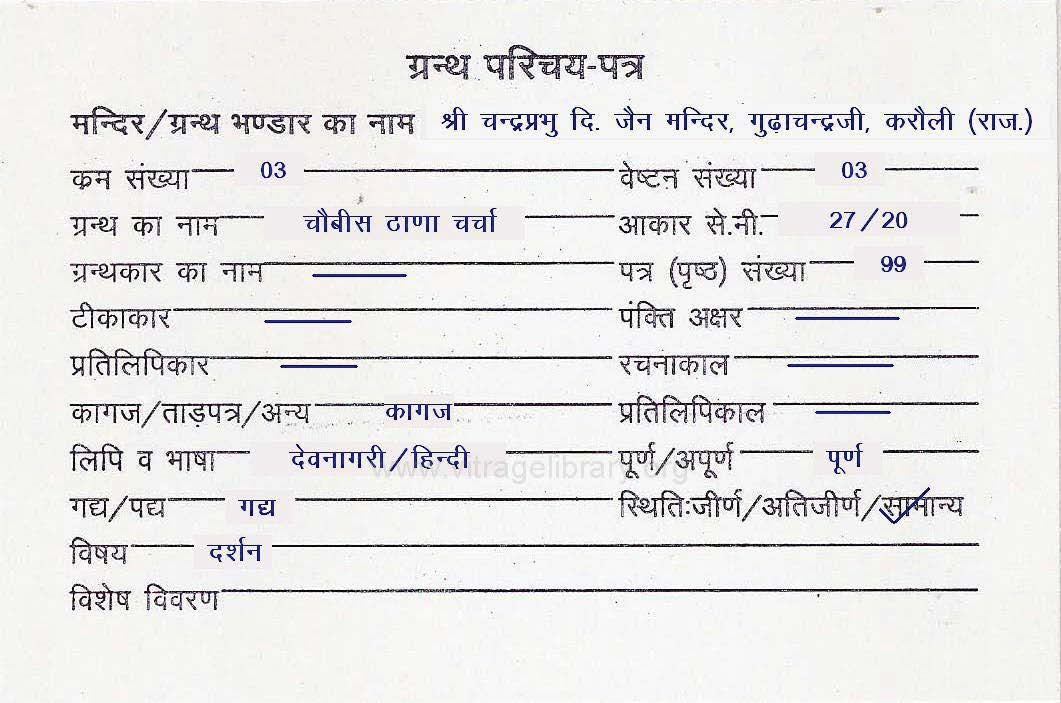 ग्रन्थ परिचय-पत्र
मन्दिर/ग्रन्थ भण्डार का नाम श्री चन्द्रप्रभु दि. जैन मन्दिर, गुढ़ाचन्द्रजी, करौली (राज.)
कम संख्या 03 वेष्टन संख्या 03
ग्रन्थ का नाम चौबीस ठाणा चर्चा आकार से.नी. 27/20
ग्रन्थकार का नाम पत्र (पृष्ठ) संख्या 99
टीकाकार पंक्ति अक्षर
प्रतिलिपिकार रचनाकाल
कागज/ताड़पत्र/अन्य कागज प्रतिलिपिकाल
लिपि व भाषा देवनागरी/हिन्दी पूर्ण/अपूर्ण पूर्ण
www.vitragelibrary.org
गद्य/पद्य गद्य स्थितिःजीर्ण/अतिजीर्ण/सामान्य
विषय दर्शन
विशेष विवरण